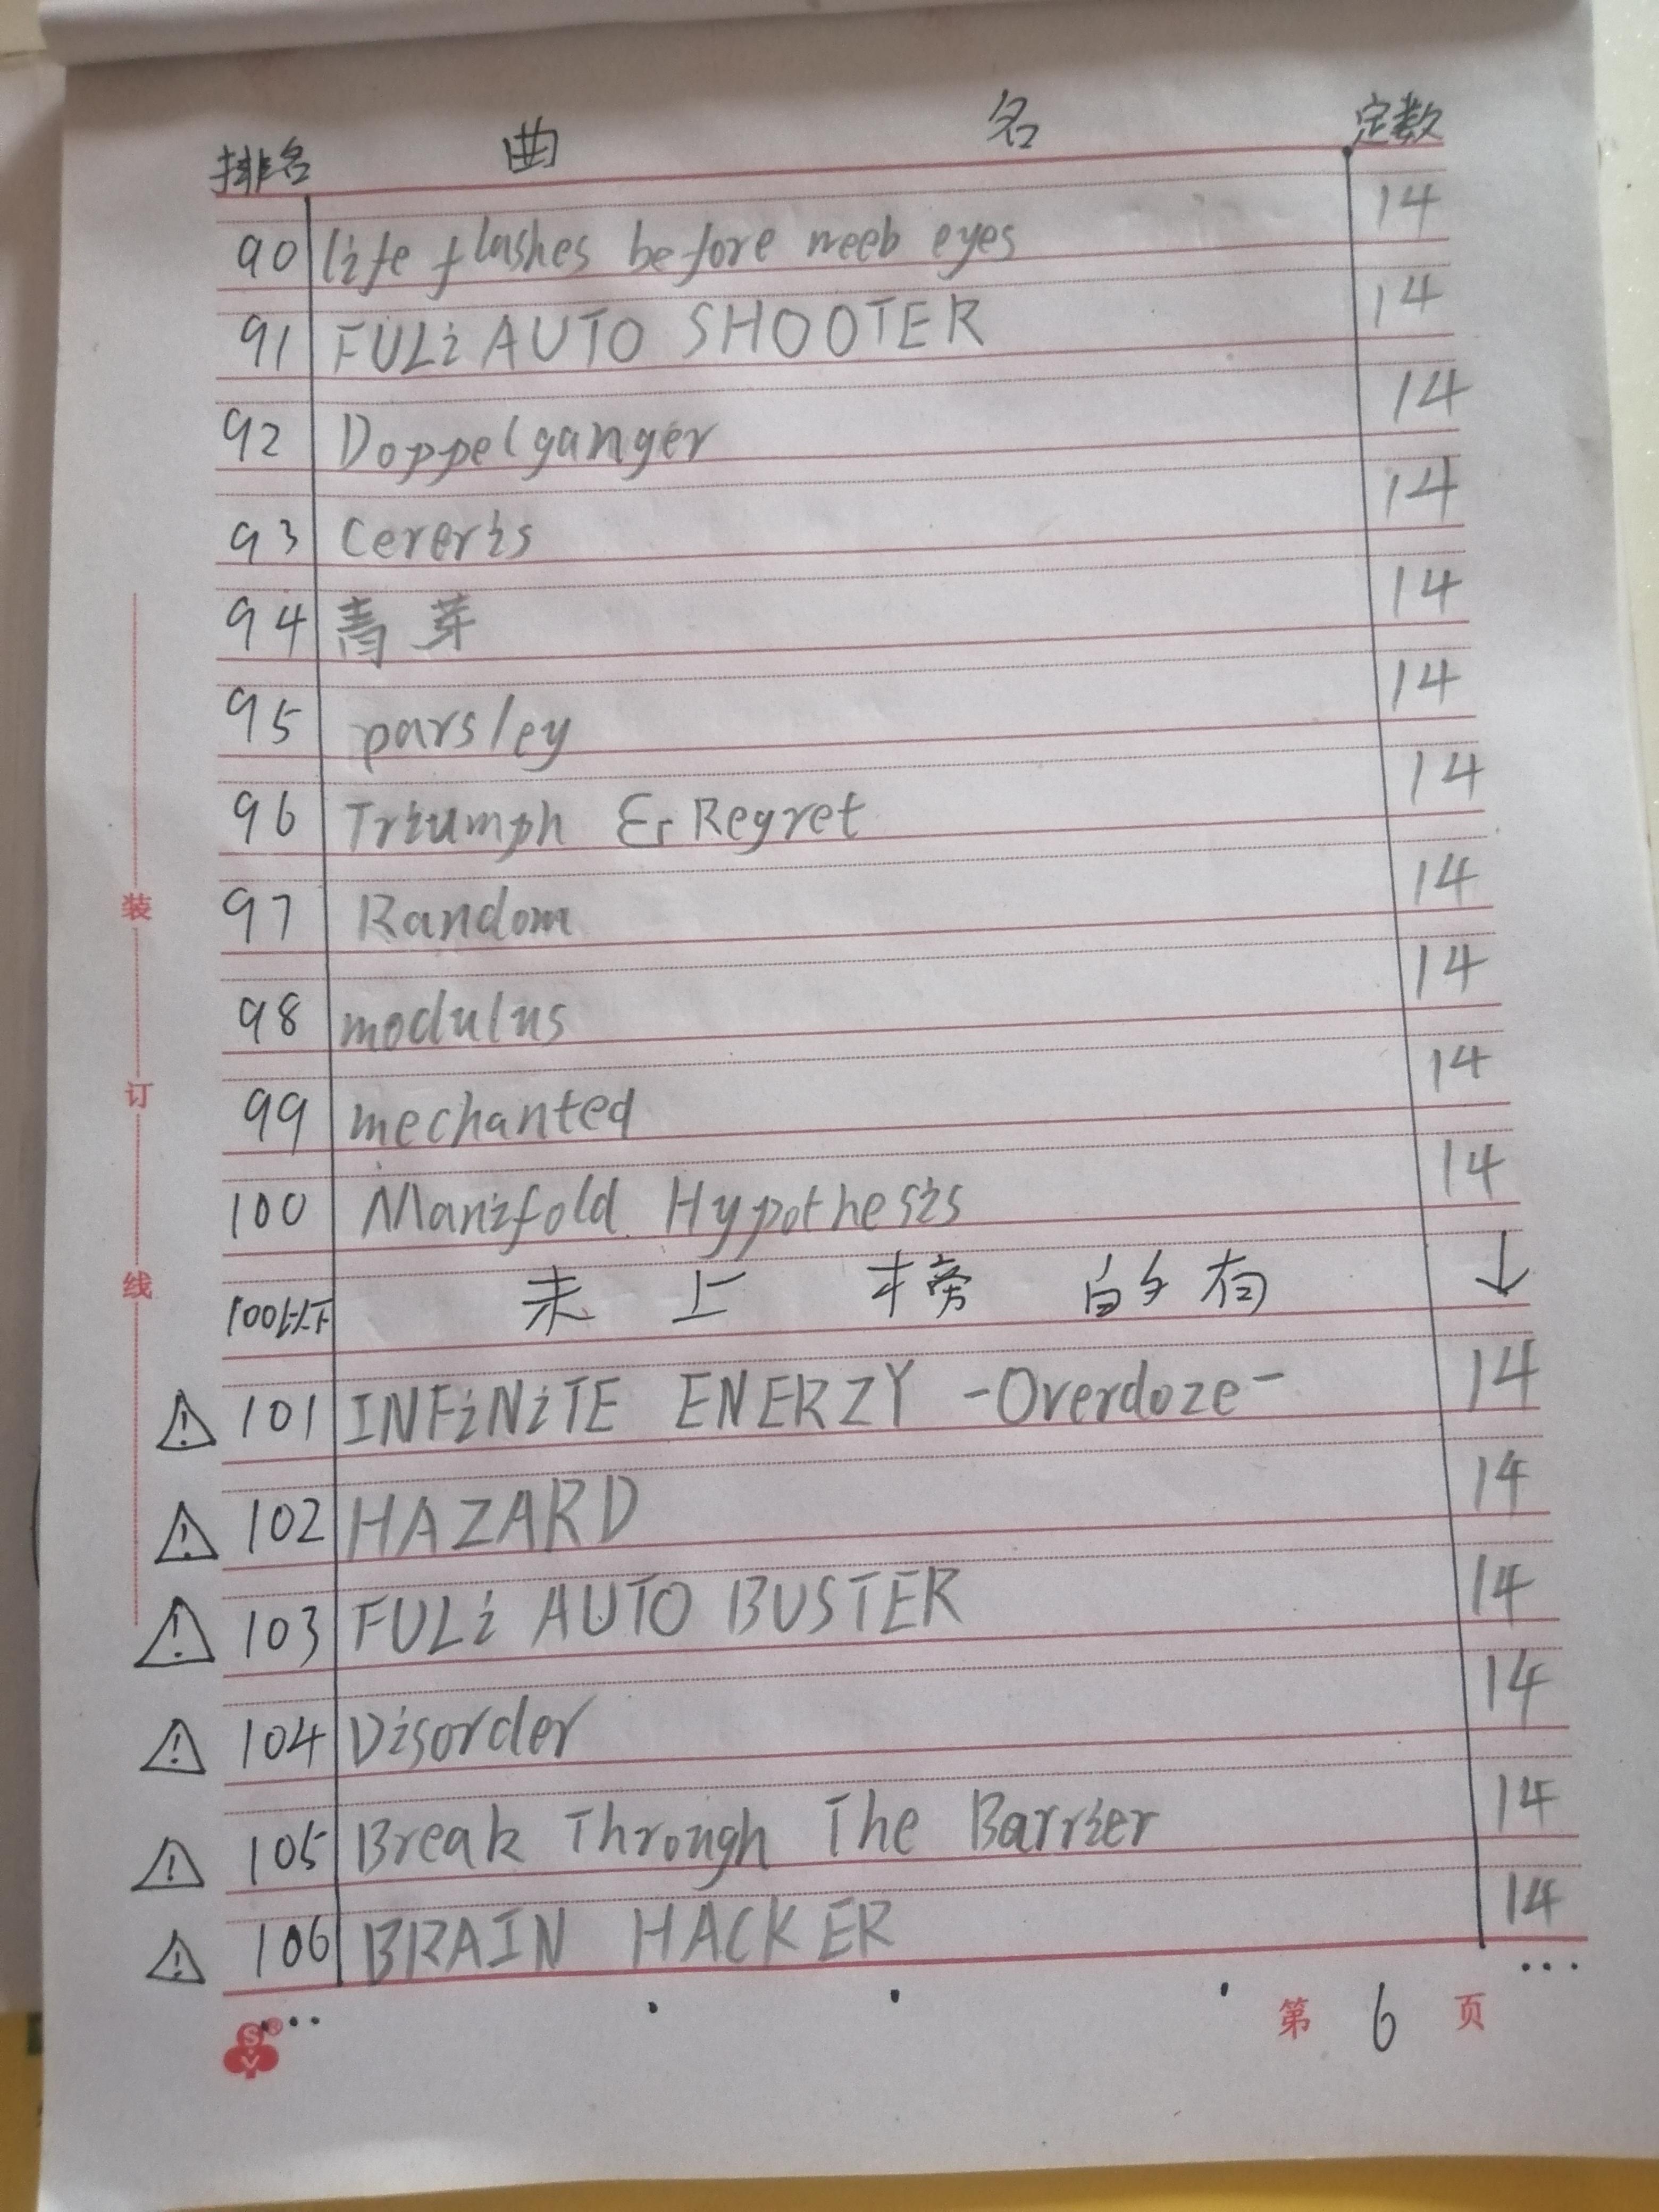 排名 曲 名 定数
90 life flashes before weeb eyes 14
91 FULi AUTO SHOOTER 14
92 Doppelganger 14
93 Cereris 14
94 青芽 14
95 parsley 14
96 Triumph & Regret 14
97 Random 14
98 modulus 14
99 mechanted 14
100 Manifold Hypothesis 14
100以下 未上榜的有 ↓
⚠ 101 INFiNiTE ENERZY -Overdoze- 14
⚠ 102 HAZARD 14
⚠ 103 FULi AUTO BUSTER 14
⚠ 104 Disorder 14
⚠ 105 Break Through The Barrier 14
⚠ 106 BRAIN HACKER 14
... . . . ...
第 6 页
装订线
SVY®